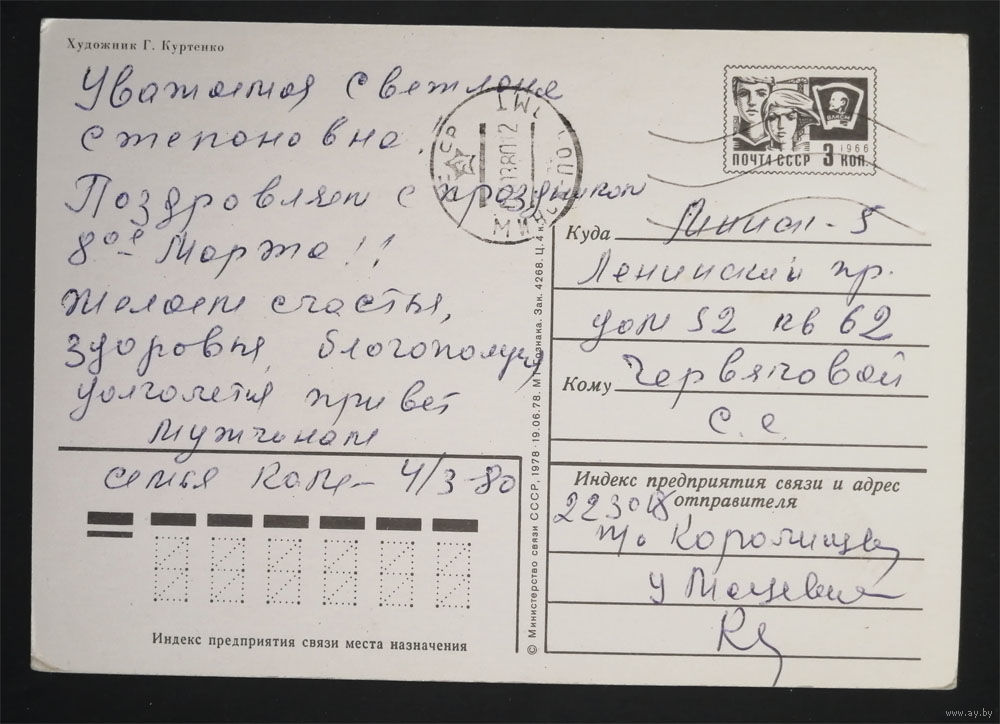 Художник Г. Куртенко
Уважаемая Светлана
Степановна.
Поздровляем с праздником
8ое Марта!!
Желаем счастья,
здоровья, благополучия
долголетия привет
Мужчинам
семья 4/3-80
Индекс предприятия связи места назначения
© Министерство связи СССР, 1978 · 19.06.78. МТ Гознака. Зак. 4268. Ц. 4 к.
ВЛКСМ
1966
ПОЧТА СССР 3 КОП
СССР
МИНСК
Куда
5
Ленинский пр.
дом 52 кв 62
Кому Червяковой
С. С.
Индекс предприятия связи и адрес
отправителя
223018
Королищев
www.ay.by